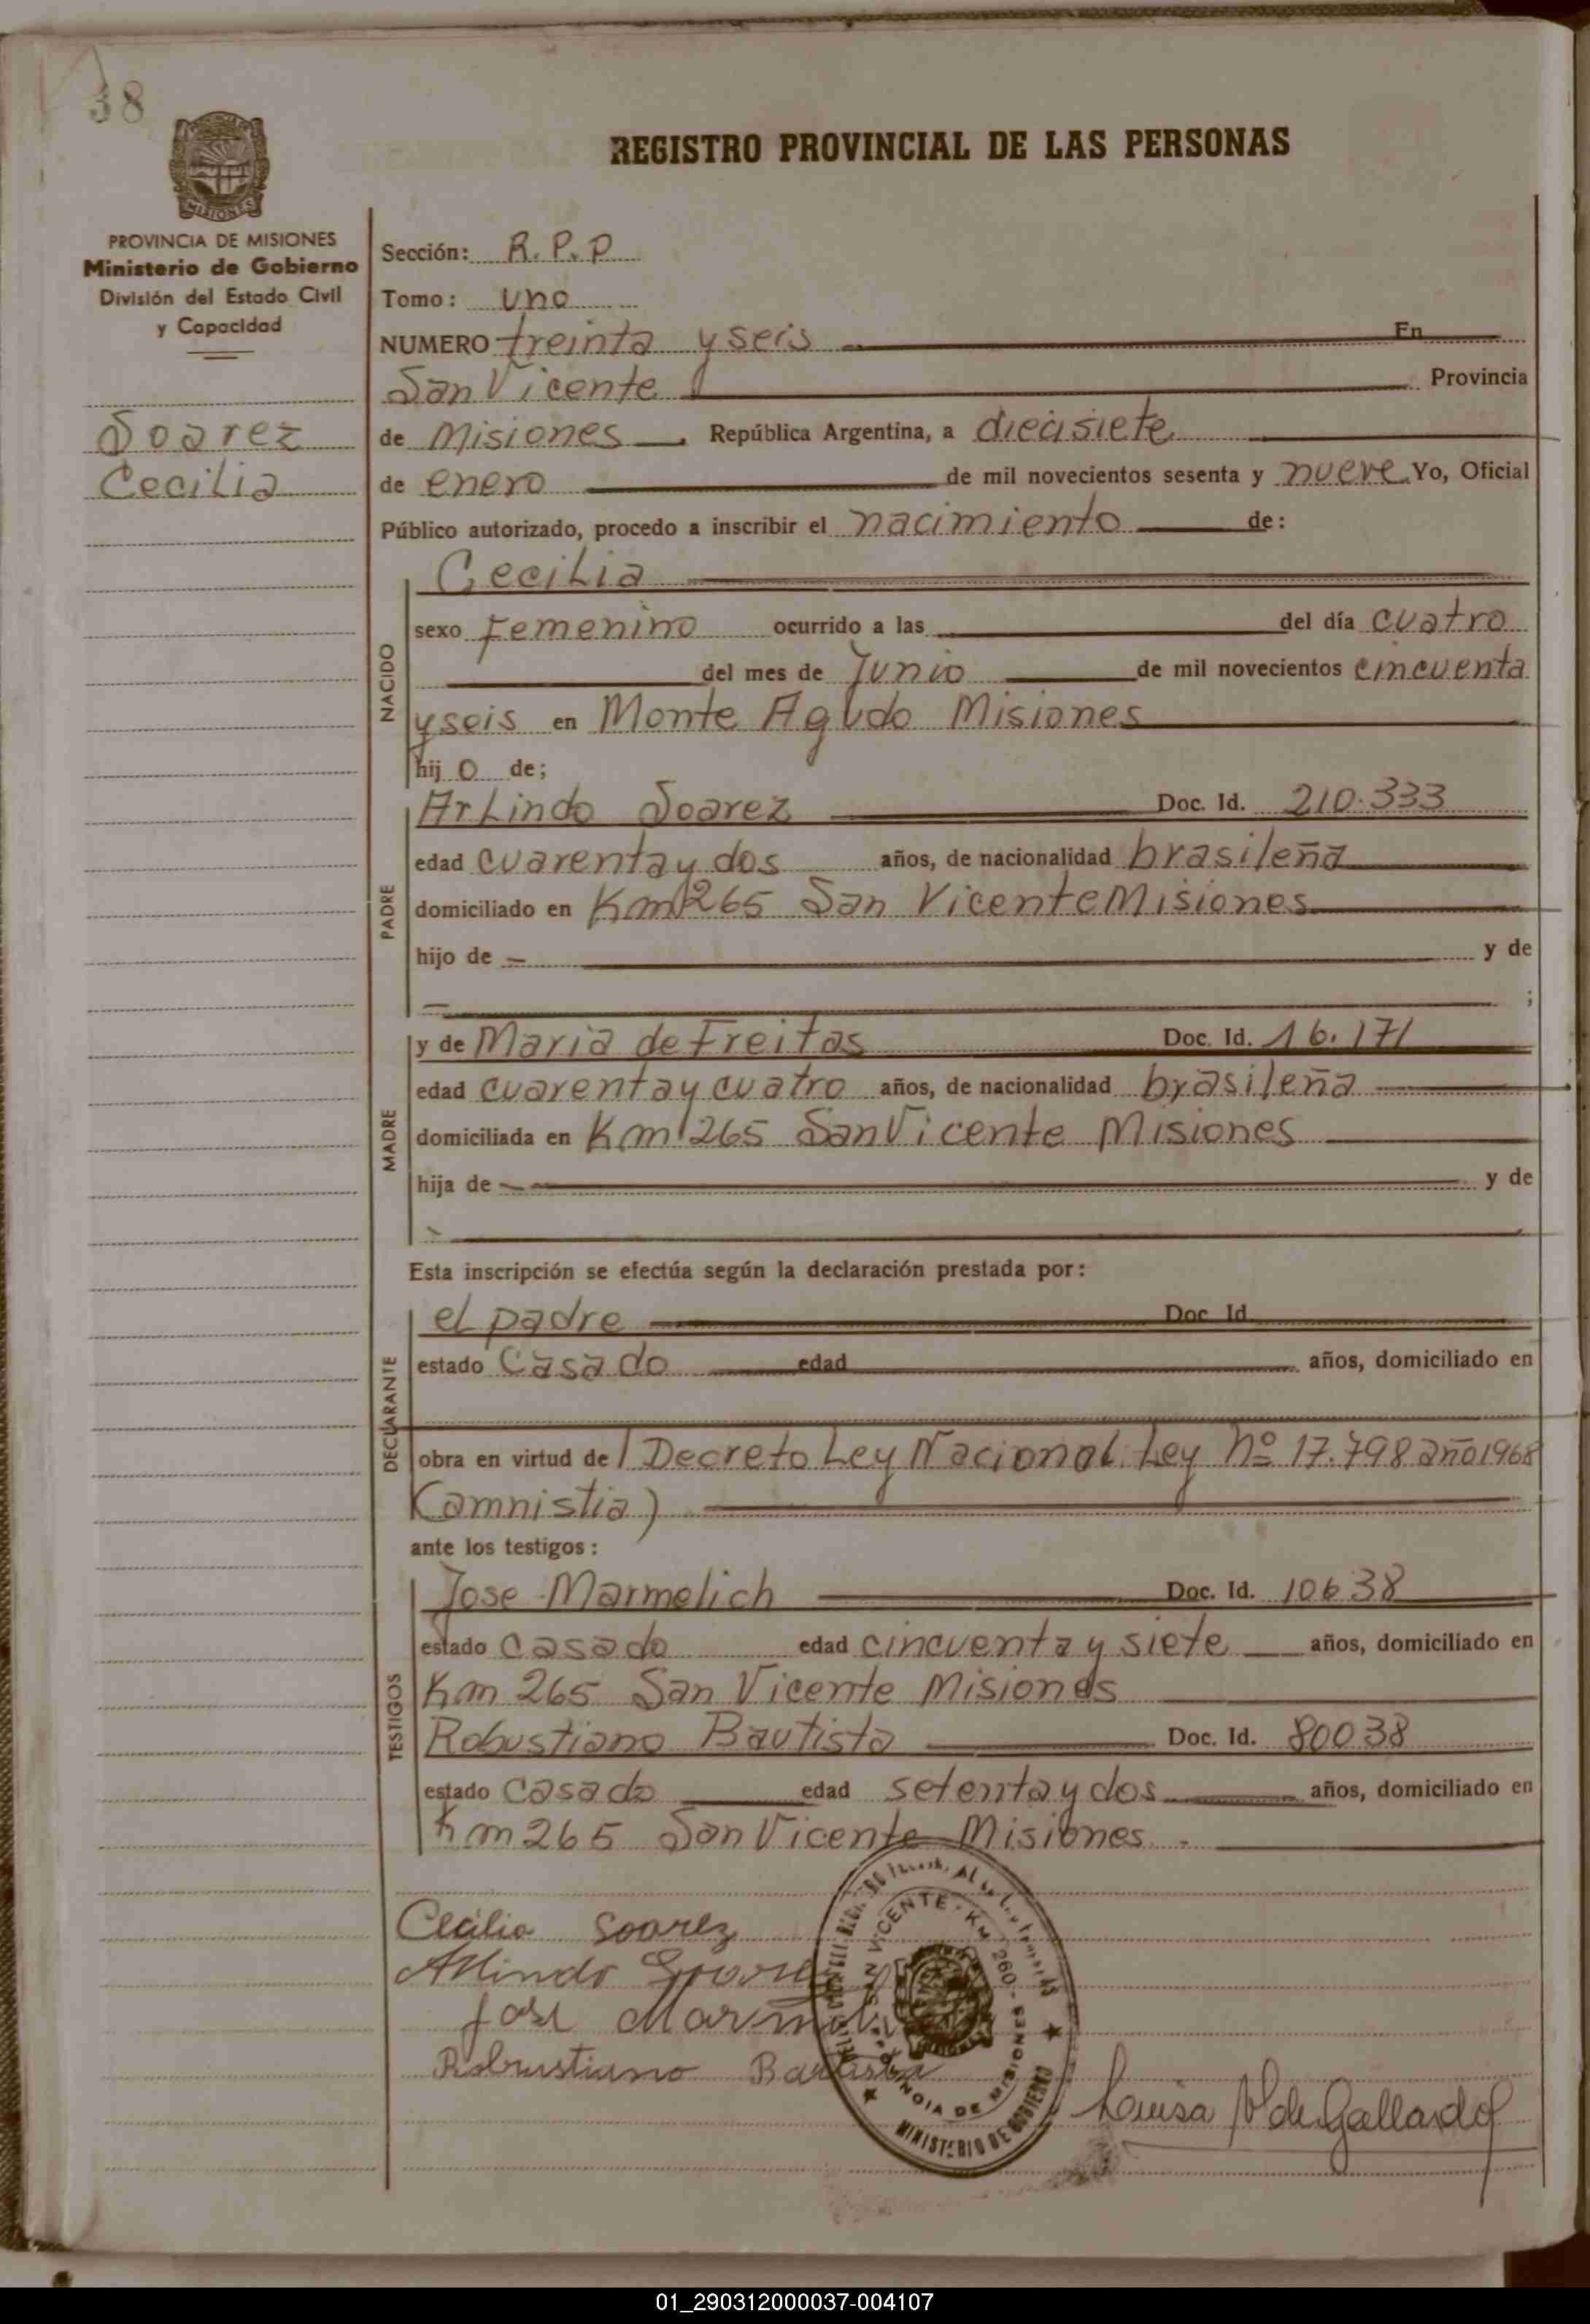 38
REGISTRO PROVINCIAL DE LAS PERSONAS
MISIONES
PROVINCIA DE MISIONES
Ministerio de Gobierno
División del Estado Civil
y Capacidad
Soarez
Cecilia
Sección: R.P.P
Tomo: uno
NUMERO treinta y seis En
San Vicente Provincia
de Misiones. República Argentina, a diecisiete
de enero de mil novecientos sesenta y nueve Yo, Oficial
Público autorizado, procedo a inscribir el nacimiento de:
NACIDO
Cecilia
sexo Femenino ocurrido a las del día cuatro
del mes de Junio de mil novecientos cincuenta
y seis en Monte Agudo Misiones
hij o de;
PADRE
Arlindo Soarez Doc. Id. 210.333
edad cuarenta y dos años, de nacionalidad brasileña
domiciliado en Km 265 San Vicente Misiones
hijo de — y de
— ;
MADRE
y de Maria de Freitas Doc. Id. 16.171
edad cuarenta y cuatro años, de nacionalidad brasileña
domiciliada en Km 265 San Vicente Misiones
hija de — y de
Esta inscripción se efectúa según la declaración prestada por:
DECLARANTE
el padre Doc Id
estado Casado edad años, domiciliado en
obra en virtud de Decreto Ley Nacional Ley nº 17.798 año 1968
(amnistia)
ante los testigos:
TESTIGOS
Jose Marmelich Doc. Id. 10638
estado casado edad cincuenta y siete años, domiciliado en
Km 265 San Vicente Misiones
Robustiano Bautista Doc. Id. 80038
estado casado edad setenta y dos años, domiciliado en
Km 265 San Vicente Misiones -
Cecilia Soarez
Arlindo Soarez
Jose
Robustiano Bautista
SAN VICENTE - KM 260 - PROVINCIA DE MISIONES
MINISTERIO DE GOBIERNO
Luisa V de Gallardo
01_290312000037-004107